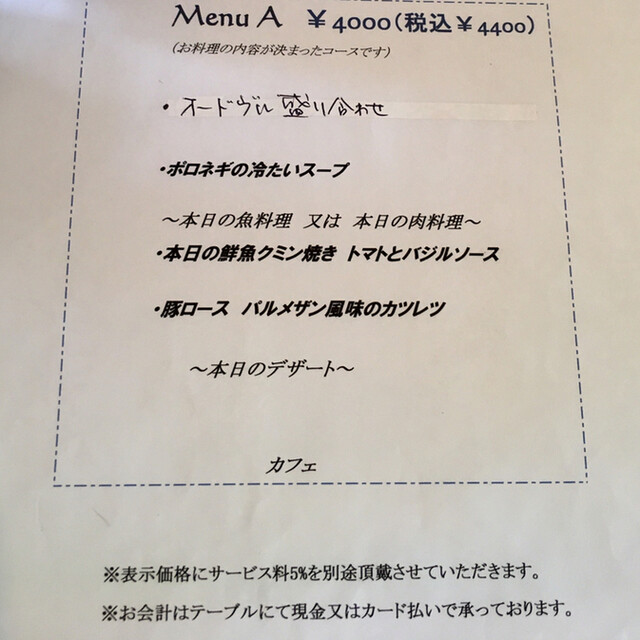 Menu A ￥4000（税込￥4400）
（お料理の内容が決まったコースです）
・オードヴル盛り合わせ
・ポロネギの冷たいスープ
～本日の魚料理 又は 本日の肉料理～
・本日の鮮魚クミン焼き トマトとバジルソース
・豚ロース パルメザン風味のカツレツ
～本日のデザート～
カフェ
※表示価格にサービス料5%を別途頂戴させていただきます。
※お会計はテーブルにて現金又はカード払いで承っております。